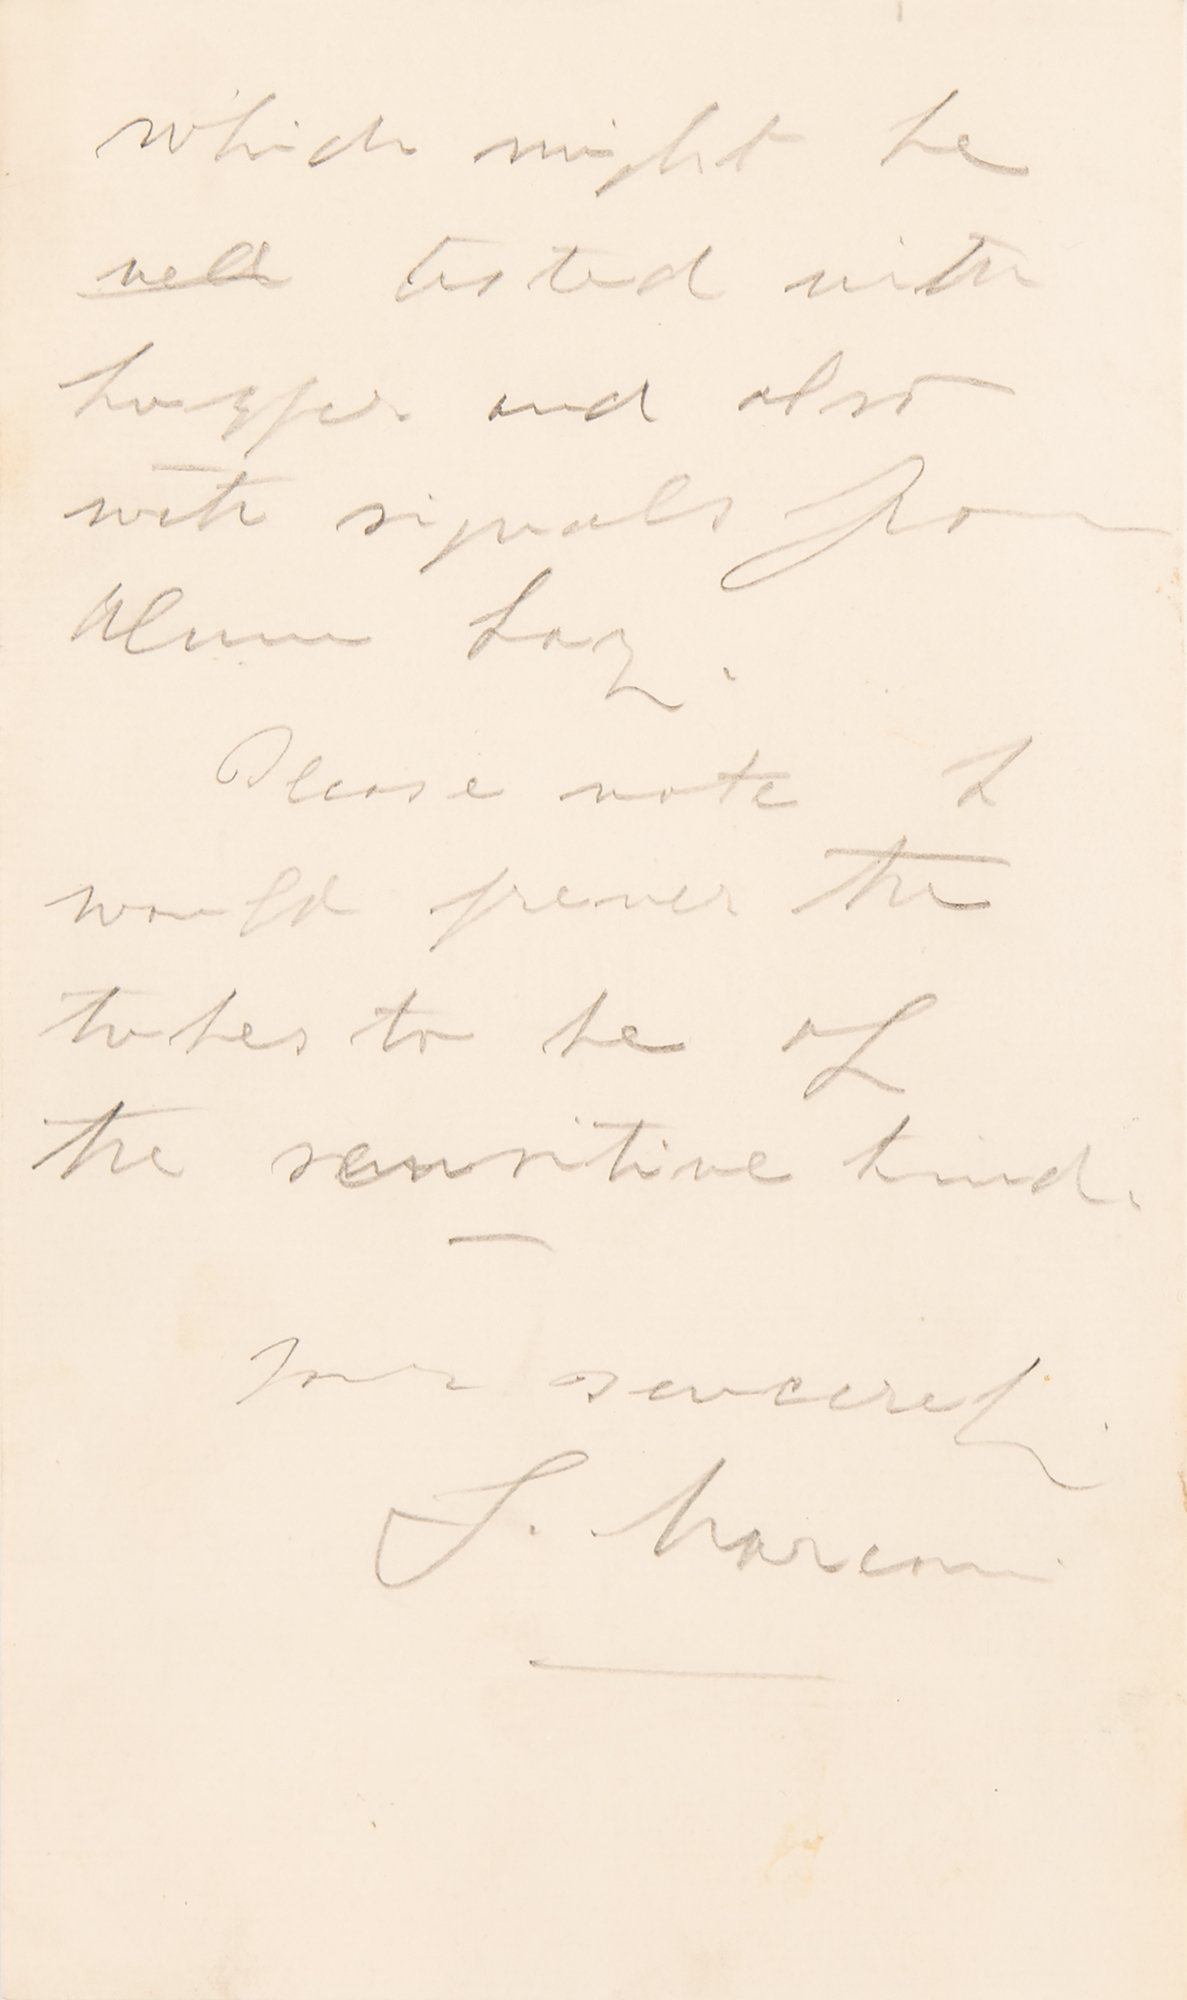 which might be
well tested with
buzzer and also
with signals from
Alum Bay.
Please note I
would prever the
tubes to be of
the sensitive kind.
Yours sincerely
G. Marconi